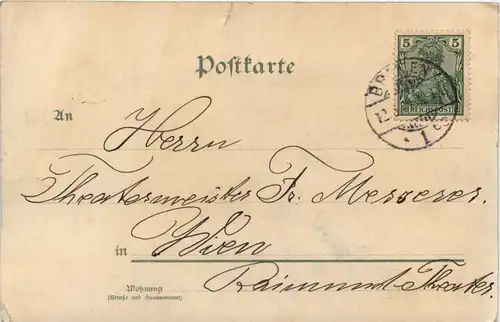 Postkarte
5 5
REICHSPOST
BREMEN
1
An
Herrn
Theatermeister Fr. Messerer.
in Wien
Raimund-Theater.
Wohnung
(Straße und Hausnummer)